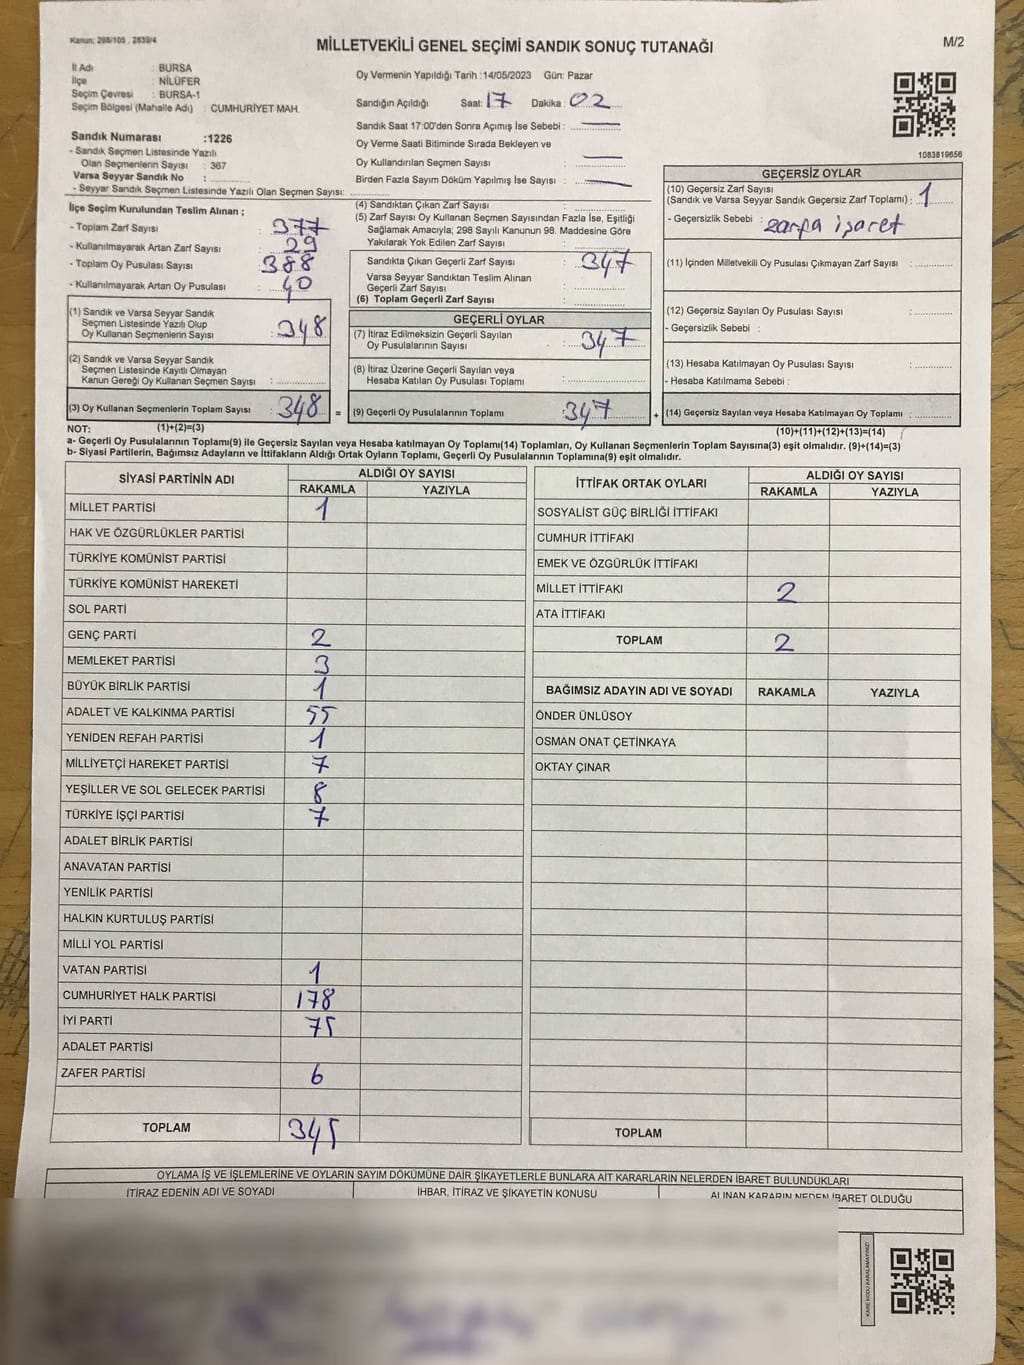 Kanun: 298/105, 2839/4
MİLLETVEKİLİ GENEL SEÇİMİ SANDIK SONUÇ TUTANAĞI
M/2
İl Adı : BURSA
İlçe : NİLÜFER
Seçim Çevresi : BURSA-1
Seçim Bölgesi (Mahalle Adı) : CUMHURİYET MAH.
Oy Vermenin Yapıldığı Tarih :14/05/2023 Gün: Pazar
Sandığın Açıldığı Saat: 17 Dakika : 02
Sandık Saat 17:00'den Sonra Açımış İse Sebebi :
Oy Verme Saati Bitiminde Sırada Bekleyen ve
Oy Kullandırılan Seçmen Sayısı :
Birden Fazla Sayım Döküm Yapılmış İse Sayısı :
1083819656
Sandık Numarası :1226
- Sandık Seçmen Listesinde Yazılı
Olan Seçmenlerin Sayısı : 367
Varsa Seyyar Sandık No :
- Seyyar Sandık Seçmen Listesinde Yazılı Olan Seçmen Sayısı:
İlçe Seçim Kurulundan Teslim Alınan ;
- Toplam Zarf Sayısı : 377
- Kullanılmayarak Artan Zarf Sayısı : 29
- Toplam Oy Pusulası Sayısı : 388
- Kullanılmayarak Artan Oy Pusulası : 40
(1) Sandık ve Varsa Seyyar Sandık
Seçmen Listesinde Yazılı Olup
Oy Kullanan Seçmenlerin Sayısı : 348
(2) Sandık ve Varsa Seyyar Sandık
Seçmen Listesinde Kayıtlı Olmayan
Kanun Gereği Oy Kullanan Seçmen Sayısı :
(3) Oy Kullanan Seçmenlerin Toplam Sayısı : 348 =
(4) Sandıktan Çıkan Zarf Sayısı :
(5) Zarf Sayısı Oy Kullanan Seçmen Sayısından Fazla İse, Eşitliği
Sağlamak Amacıyla; 298 Sayılı Kanunun 98. Maddesine Göre
Yakılarak Yok Edilen Zarf Sayısı :
Sandıkta Çıkan Geçerli Zarf Sayısı : 347
Varsa Seyyar Sandıktan Teslim Alınan
Geçerli Zarf Sayısı :
(6) Toplam Geçerli Zarf Sayısı :
GEÇERLİ OYLAR
(7) İtiraz Edilmeksizin Geçerli Sayılan
Oy Pusulalarının Sayısı : 347
(8) İtiraz Üzerine Geçerli Sayılan veya
Hesaba Katılan Oy Pusulası Toplamı :
(9) Geçerli Oy Pusulalarının Toplamı : 347 +
GEÇERSİZ OYLAR
(10) Geçersiz Zarf Sayısı
(Sandık ve Varsa Seyyar Sandık Geçersiz Zarf Toplamı) : 1
- Geçersizlik Sebebi : zarfa işaret
(11) İçinden Milletvekili Oy Pusulası Çıkmayan Zarf Sayısı :
(12) Geçersiz Sayılan Oy Pusulası Sayısı :
- Geçersizlik Sebebi :
(13) Hesaba Katılmayan Oy Pusulası Sayısı :
- Hesaba Katılmama Sebebi :
(14) Geçersiz Sayılan veya Hesaba Katılmayan Oy Toplamı :
NOT: (1)+(2)=(3) (10)+(11)+(12)+(13)=(14)
a- Geçerli Oy Pusulalarının Toplamı(9) ile Geçersiz Sayılan veya Hesaba katılmayan Oy Toplamı(14) Toplamları, Oy Kullanan Seçmenlerin Toplam Sayısına(3) eşit olmalıdır. (9)+(14)=(3)
b- Siyasi Partilerin, Bağımsız Adayların ve İttifakların Aldığı Ortak Oyların Toplamı, Geçerli Oy Pusulalarının Toplamına(9) eşit olmalıdır.
SİYASİ PARTİNİN ADI ALDIĞI OY SAYISI
RAKAMLA YAZIYLA
MİLLET PARTİSİ 1
HAK VE ÖZGÜRLÜKLER PARTİSİ
TÜRKİYE KOMÜNİST PARTİSİ
TÜRKİYE KOMÜNİST HAREKETİ
SOL PARTİ
GENÇ PARTİ 2
MEMLEKET PARTİSİ 3
BÜYÜK BİRLİK PARTİSİ 1
ADALET VE KALKINMA PARTİSİ 55
YENİDEN REFAH PARTİSİ 1
MİLLİYETÇİ HAREKET PARTİSİ 7
YEŞİLLER VE SOL GELECEK PARTİSİ 8
TÜRKİYE İŞÇİ PARTİSİ 7
ADALET BİRLİK PARTİSİ
ANAVATAN PARTİSİ
YENİLİK PARTİSİ
HALKIN KURTULUŞ PARTİSİ
MİLLİ YOL PARTİSİ
VATAN PARTİSİ 1
CUMHURİYET HALK PARTİSİ 178
İYİ PARTİ 75
ADALET PARTİSİ
ZAFER PARTİSİ 6
TOPLAM 345
İTTİFAK ORTAK OYLARI ALDIĞI OY SAYISI
RAKAMLA YAZIYLA
SOSYALİST GÜÇ BİRLİĞİ İTTİFAKI
CUMHUR İTTİFAKI
EMEK VE ÖZGÜRLÜK İTTİFAKI
MİLLET İTTİFAKI 2
ATA İTTİFAKI
TOPLAM 2
BAĞIMSIZ ADAYIN ADI VE SOYADI RAKAMLA YAZIYLA
ÖNDER ÜNLÜSOY
OSMAN ONAT ÇETİNKAYA
OKTAY ÇINAR
TOPLAM
OYLAMA İŞ VE İŞLEMLERİNE VE OYLARIN SAYIM DÖKÜMÜNE DAİR ŞİKAYETLERLE BUNLARA AİT KARARLARIN NELERDEN İBARET BULUNDUKLARI
İTİRAZ EDENİN ADI VE SOYADI İHBAR, İTİRAZ VE ŞİKAYETİN KONUSU ALINAN KARARIN NEDEN İBARET OLDUĞU